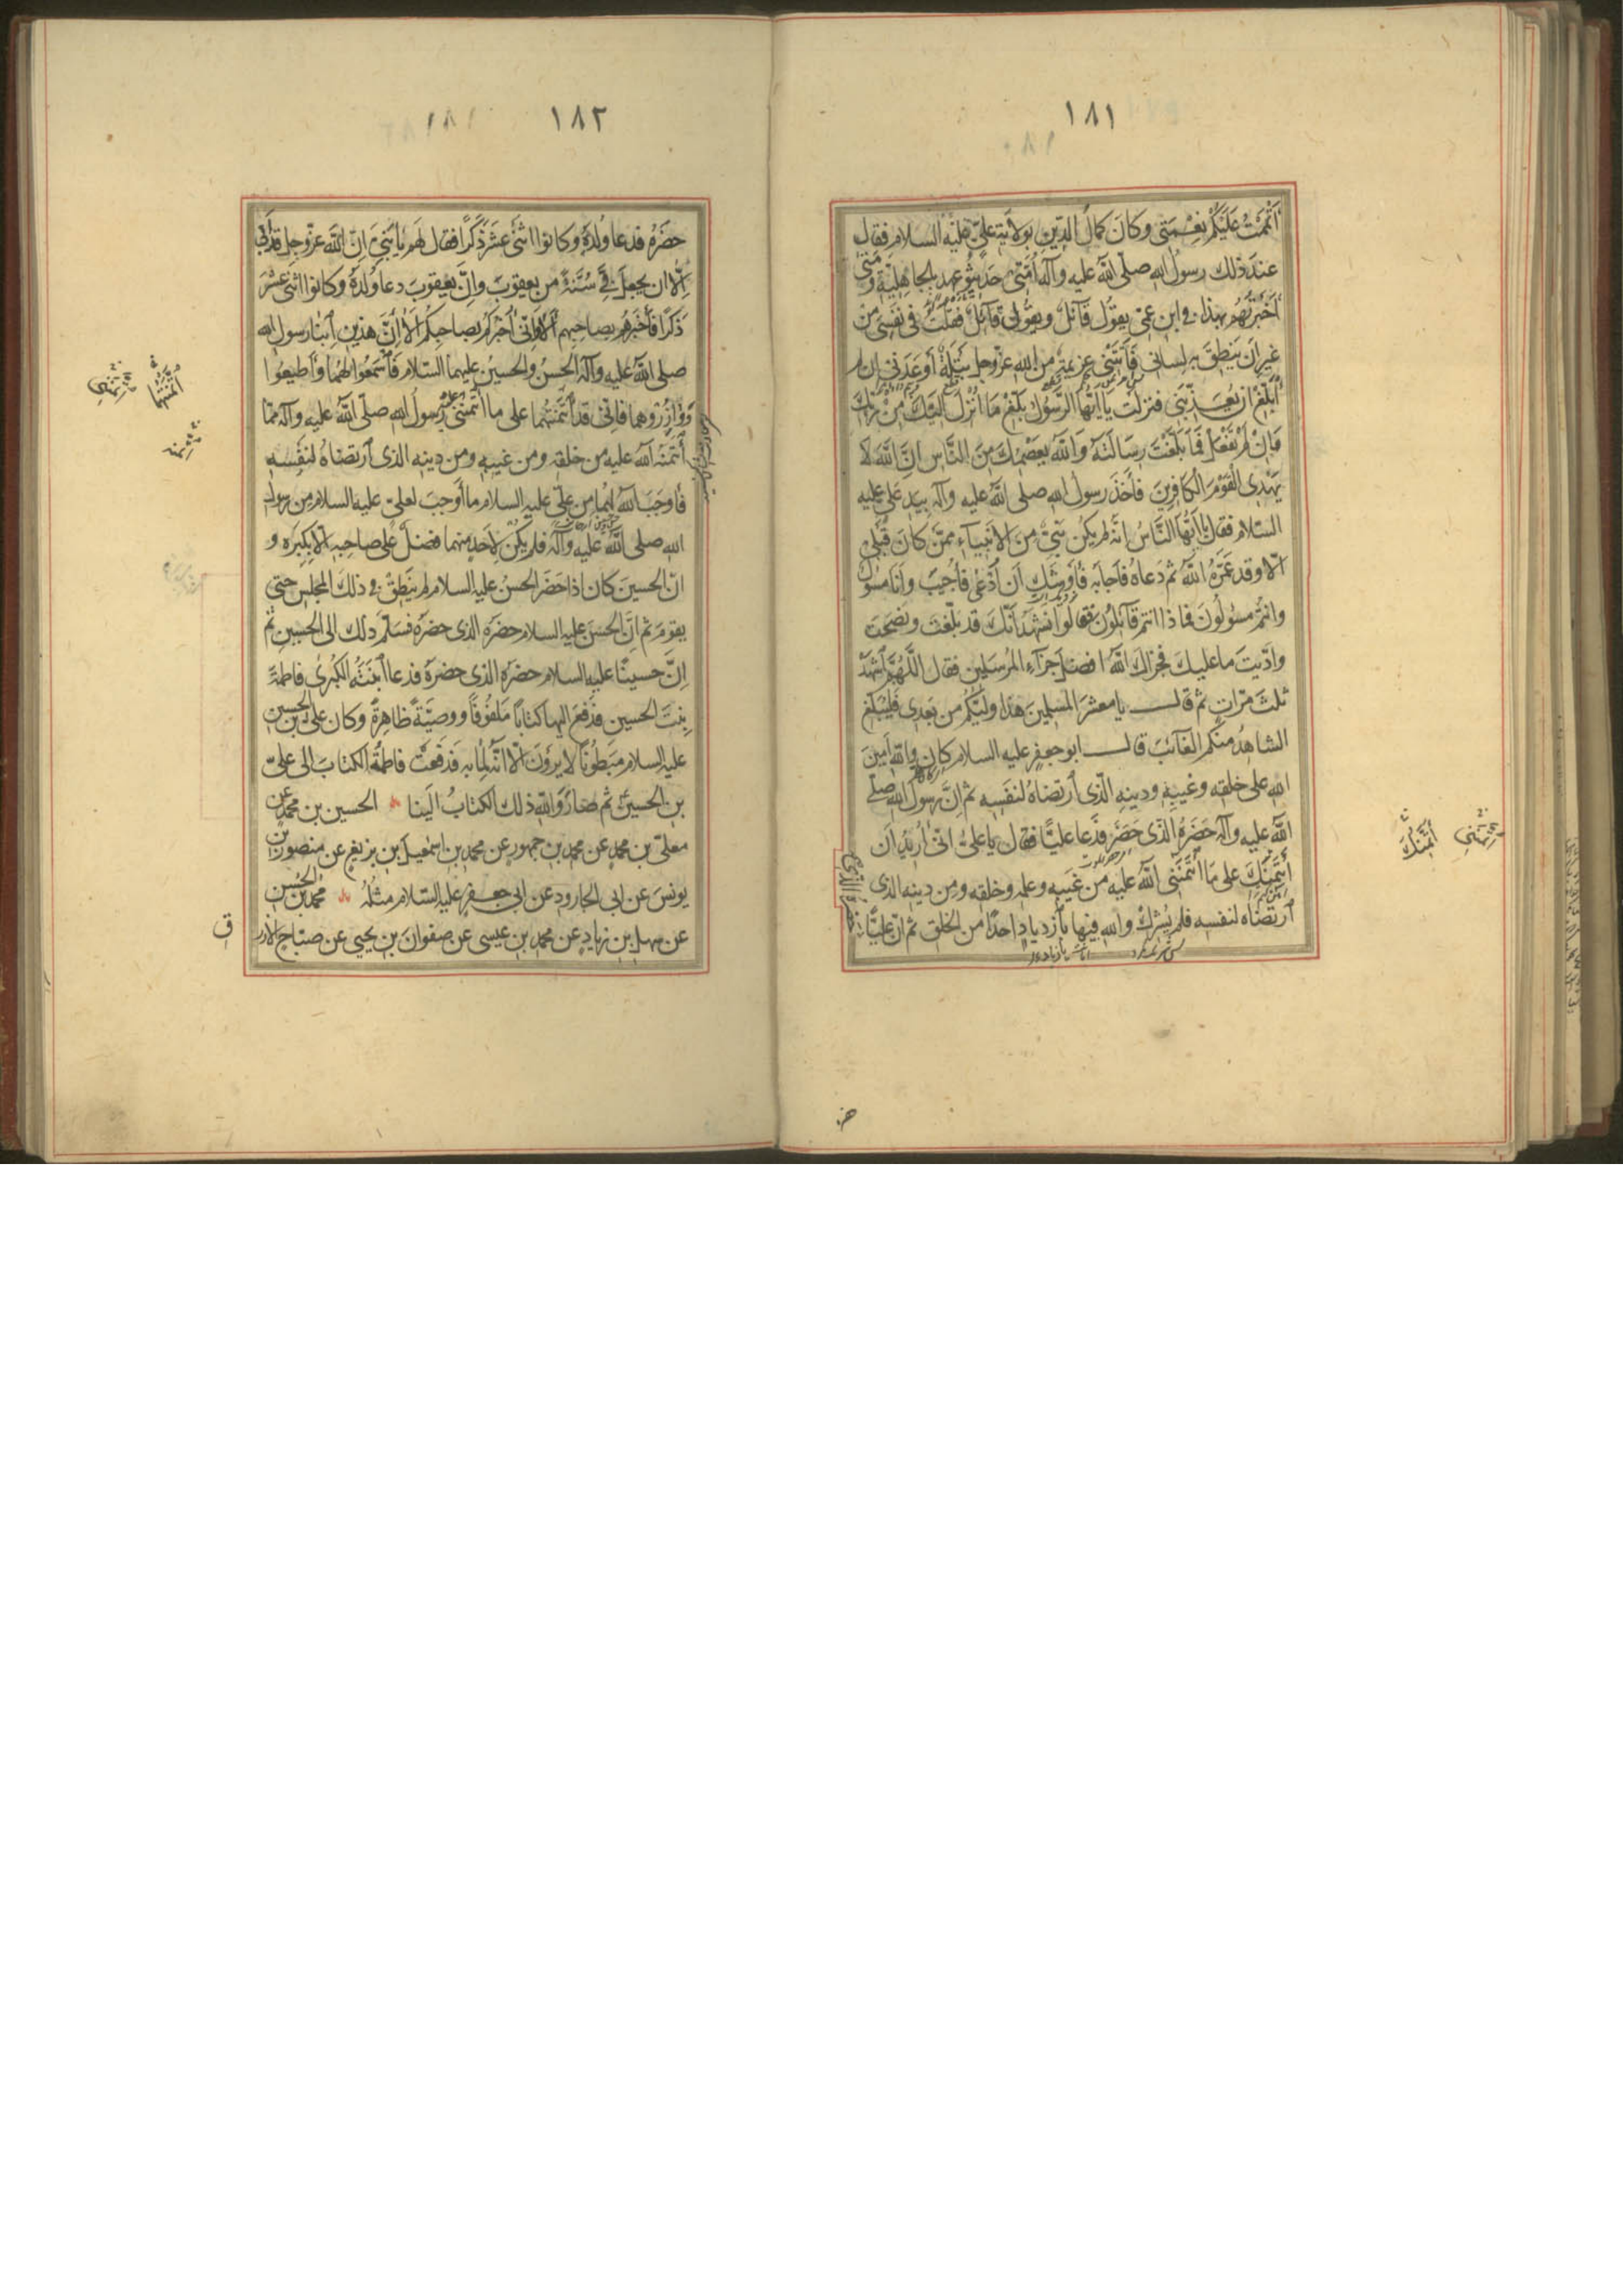 ١٨١
أَتْمَمْتُ عَلَيْكُمْ نِعْمَتِي وَكَانَ كَمَالُ الدِّينِ بِوِلايَةِ عَلِيٍّ عَلَيْهِ السلام فقال
عندَ ذلك رسولُ الله صلّى اللهُ عليه وآله اُمَّتى حَدِيثُو عهدٍ بالجاهِلِيَّةِ ومَتٰى
أخبَرْتُهُم بهذا فى ابن عمّى يقولُ قآئلٌ ويقولُ قآئلٌ فقلتُ فى نفسى من
غيرِ أن ينطِقَ به لسانى فَأَتَتْنى عزيمةٌ من الله عزّوجلّ بَتْلَةٌ أوعَدَنى ان لم
أُبَلِّغْ ان يُعذّبَنى فنزلت يا ايّها الرّسُول بَلِّغْ مَا اُنزلَ اليكَ مِنْ رَبِّكَ
وَاِنْ لَمْ تَفْعَلْ فَمَا بَلَّغْتَ رِسَالَتَهُ وَاللهُ يَعْصِمُكَ مِنَ النَّاسِ اِنَّ اللهَ لَا
يَهْدِى القَوْمَ الكَافِرِينَ فأخذَ رسولُ الله صلى اللهُ عليه وآله بيدِ علىّ عليه
السّلام فقال يا ايّها النّاسُ انّه لم يكُن نبىٌّ من الأنبيآء ممّن كانَ قبلى
الّا وقد عَمَّرَهُ اللهُ ثم دعاهُ فأجابَه فأوشَكَ أن اُدْعٰى فأُجيبَ وأنا مسؤلٌ
وانتُم مسؤلُونَ فماذا انتم قآئلُون فقالوا نشهَدُ أنّكَ قد بلّغتَ ونصَحتَ
وادّيتَ ما عليكَ فجزاكَ اللهُ افضلَ جزآءِ المُرسَلين فقال اللّهُمّ اشهَدْ
ثلثَ مرّاتٍ ثم قال يا معشرَ المسلمينَ هذا وليّكُم من بعدى فليُبلّغ
الشاهدُ منكم الغآئبَ قال ابو جعفر عليه السلام كان واللهِ أمينَ
الله على خلقه وغيبِه ودينِه الّذى ارتضاهُ لنفسِه ثم إنّ رسولَ الله صلّى
اللهُ عليه وآله حَضَرَهُ الّذى حَضَرَ فدَعا عليًّا فقال يا علىُّ انّى اُريدُ أن
أئتَمِنَكَ على ما ائتَمَنَنى اللهُ عليه من غيبِه وعلمِه وخلقِه ومن دينِه الذى
ارتضاه لنفسه فلم يُشرِكْ والله فيها يا زيادُ احدًا من الخلق ثم انّ عليًّا
حضره الذى
١٨٢
حضَرَهُ فدعا وُلدَهُ وكانوا اثنَى عشَرَ ذكَرًا فقال لهم يا بَنِىَّ انّ اللهَ عزّوجلّ قد أبى
إلّا ان يجعلَ فىَّ سُنّةً من يعقوبَ وإنّ يعقوبَ دعا وُلدَهُ وكانوا اثنَى عشَرَ
ذكَرًا فأخبرهُم بصاحبِهم ألا وانّى اُخبرُكُم بصاحبِكُم ألا إنّ هذينِ ابنا رسولِ الله
صلى اللهُ عليه وآله الحسنُ والحسينُ عليهما السّلام فاسمَعُوا لهُما وأطيعُوا
ووازِرُوهما فإنّى قد ائتَمَنتُهما على ما ائتمنَنى عليه رسولُ الله صلّى اللهُ عليه وآله ممّا
ائتمَنَه اللهُ عليه من خلقِه ومن غيبِه ومن دينِه الذى ارتضاهُ لنفسِه
فأوجَبَ اللهُ لهُما من علىٍّ عليه السلام ما أوجبَ لعلىّ عليه السلام من رسولِ
الله صلى اللهُ عليه وآله فلم يكُن لأحدٍ منهما فضلٌ على صاحبِه الّا بكِبَرِه و
انّ الحسينَ كان اذا حضَرَ الحسنُ عليه السلام لم ينطِقْ فى ذلك المجلس حتى
يقومَ ثم انّ الحسنَ عليه السلام حضرَه الذى حضَرَه فسلّم ذلك الى الحسينِ ثم
إنّ حسينًا عليه السلام حضرَه الذى حضرَه فدعا ابنتَهُ الكُبرى فاطمةَ
بنتَ الحسين فدفعَ اليها كتابًا مَلفُوفًا ووصيّةً ظاهرةً وكان علىُّ بن الحسين
عليه السلام مبطُونًا لا يرَونَ الّا انّه لِما به فدفعَت فاطمةُ الكتابَ الى علىّ
بن الحسين ثم صارَ واللهِ ذلك الكتابُ الينا الحسين بن محمد عن
معلّى بن محمدٍ عن محمد بن جمهورٍ عن محمد بن اسمعيلَ بن بزيعٍ عن منصور بن
يونسَ عن ابى الجارود عن ابى جعفرٍ عليه السّلام مثلَهُ محمد بن الحسن
عن سهل بن زيادٍ عن محمد بن عيسى عن صفوان بن يحيى عن صبّاحٍ الازر
ق